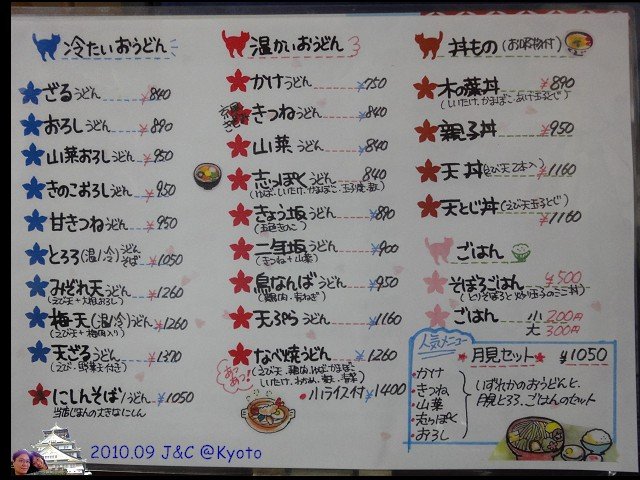 冷たいおうどん
ざるうどん ¥840
おろしうどん ¥890
山菜おろしうどん ¥950
きのこおろしうどん ¥950
甘きつねうどん ¥950
とろろ(温/冷)うどん そば ¥1050
みぞれ天うどん ¥1260
(えび天+大根おろし)
梅天(温/冷)うどん ¥1260
(えび天+梅肉入り)
天ざるうどん ¥1370
(えび・野菜天付き)
にしんそば/うどん ¥1050
当店じまんの大きなにしん
温かいおうどん
かけうどん ¥750
きつねうどん ¥840
山菜うどん ¥840
志っぽくうどん 840
きょう坂うどん ¥890
二年坂うどん ¥900
(きつね+山菜)
鳥なんばうどん ¥950
(鶏肉・青ねぎ)
天ぷらうどん ¥1160
なべ焼うどん ¥1260
あつあつっ!
・小ライス付 ¥1400
丼もの (お吸物付)
木の葉丼 ¥890
(しいたけ、かまぼこ、あげ玉子とじ)
親子丼 ¥950
天丼(えび天2本入) ¥1160
天とじ丼(えび天玉子とじ) ¥1160
ごはん
そぼろごはん ¥500
ごはん 小 200円
大 300円
人気メニュー
月見セット ¥1050
・かけ
・きつね
・山菜
・志っぽく
・おろし
いずれかのおうどんと、
月見とろろ、ごはんのセット
2010.09 J&C @Kyoto